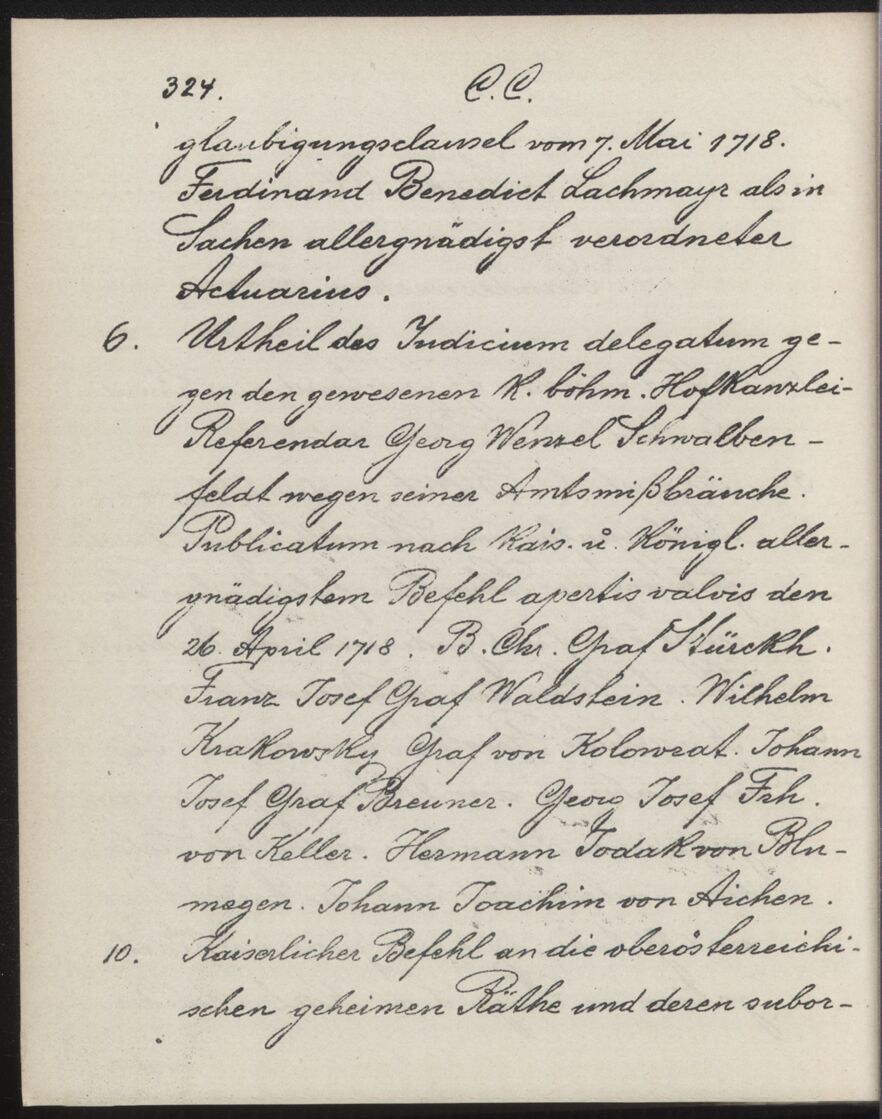 324. C. C.
glaubigungsclausel vom 7. Mai 1718.
Ferdinand Benedict Lachmayr als in
Sachen allergnädigst verordneter
Actuarius.
6. Urtheil des Judicium delegatum ge-
gen den gewesenen k. böhm. Hofkanzlei-
Referendar Georg Wenzel Schwalben-
feldt wegen seiner Amtsmißbräuche.
Publicatum nach Kais. u. Königl. aller-
gnädigstem Befehl apertis valvis den
26. April 1718. B. Chr. Graf Stürckh.
Franz Josef Graf Waldstein. Wilhelm
Krakowsky Graf von Kolowrat. Johann
Josef Graf Breuner. Georg Josef Frh.
von Keller. Hermann Jodak von Blu-
megen. Johann Joachim von Aichen.
10. Kaiserlicher Befehl an die oberösterreichi-
schen geheimen Räthe und deren subor-